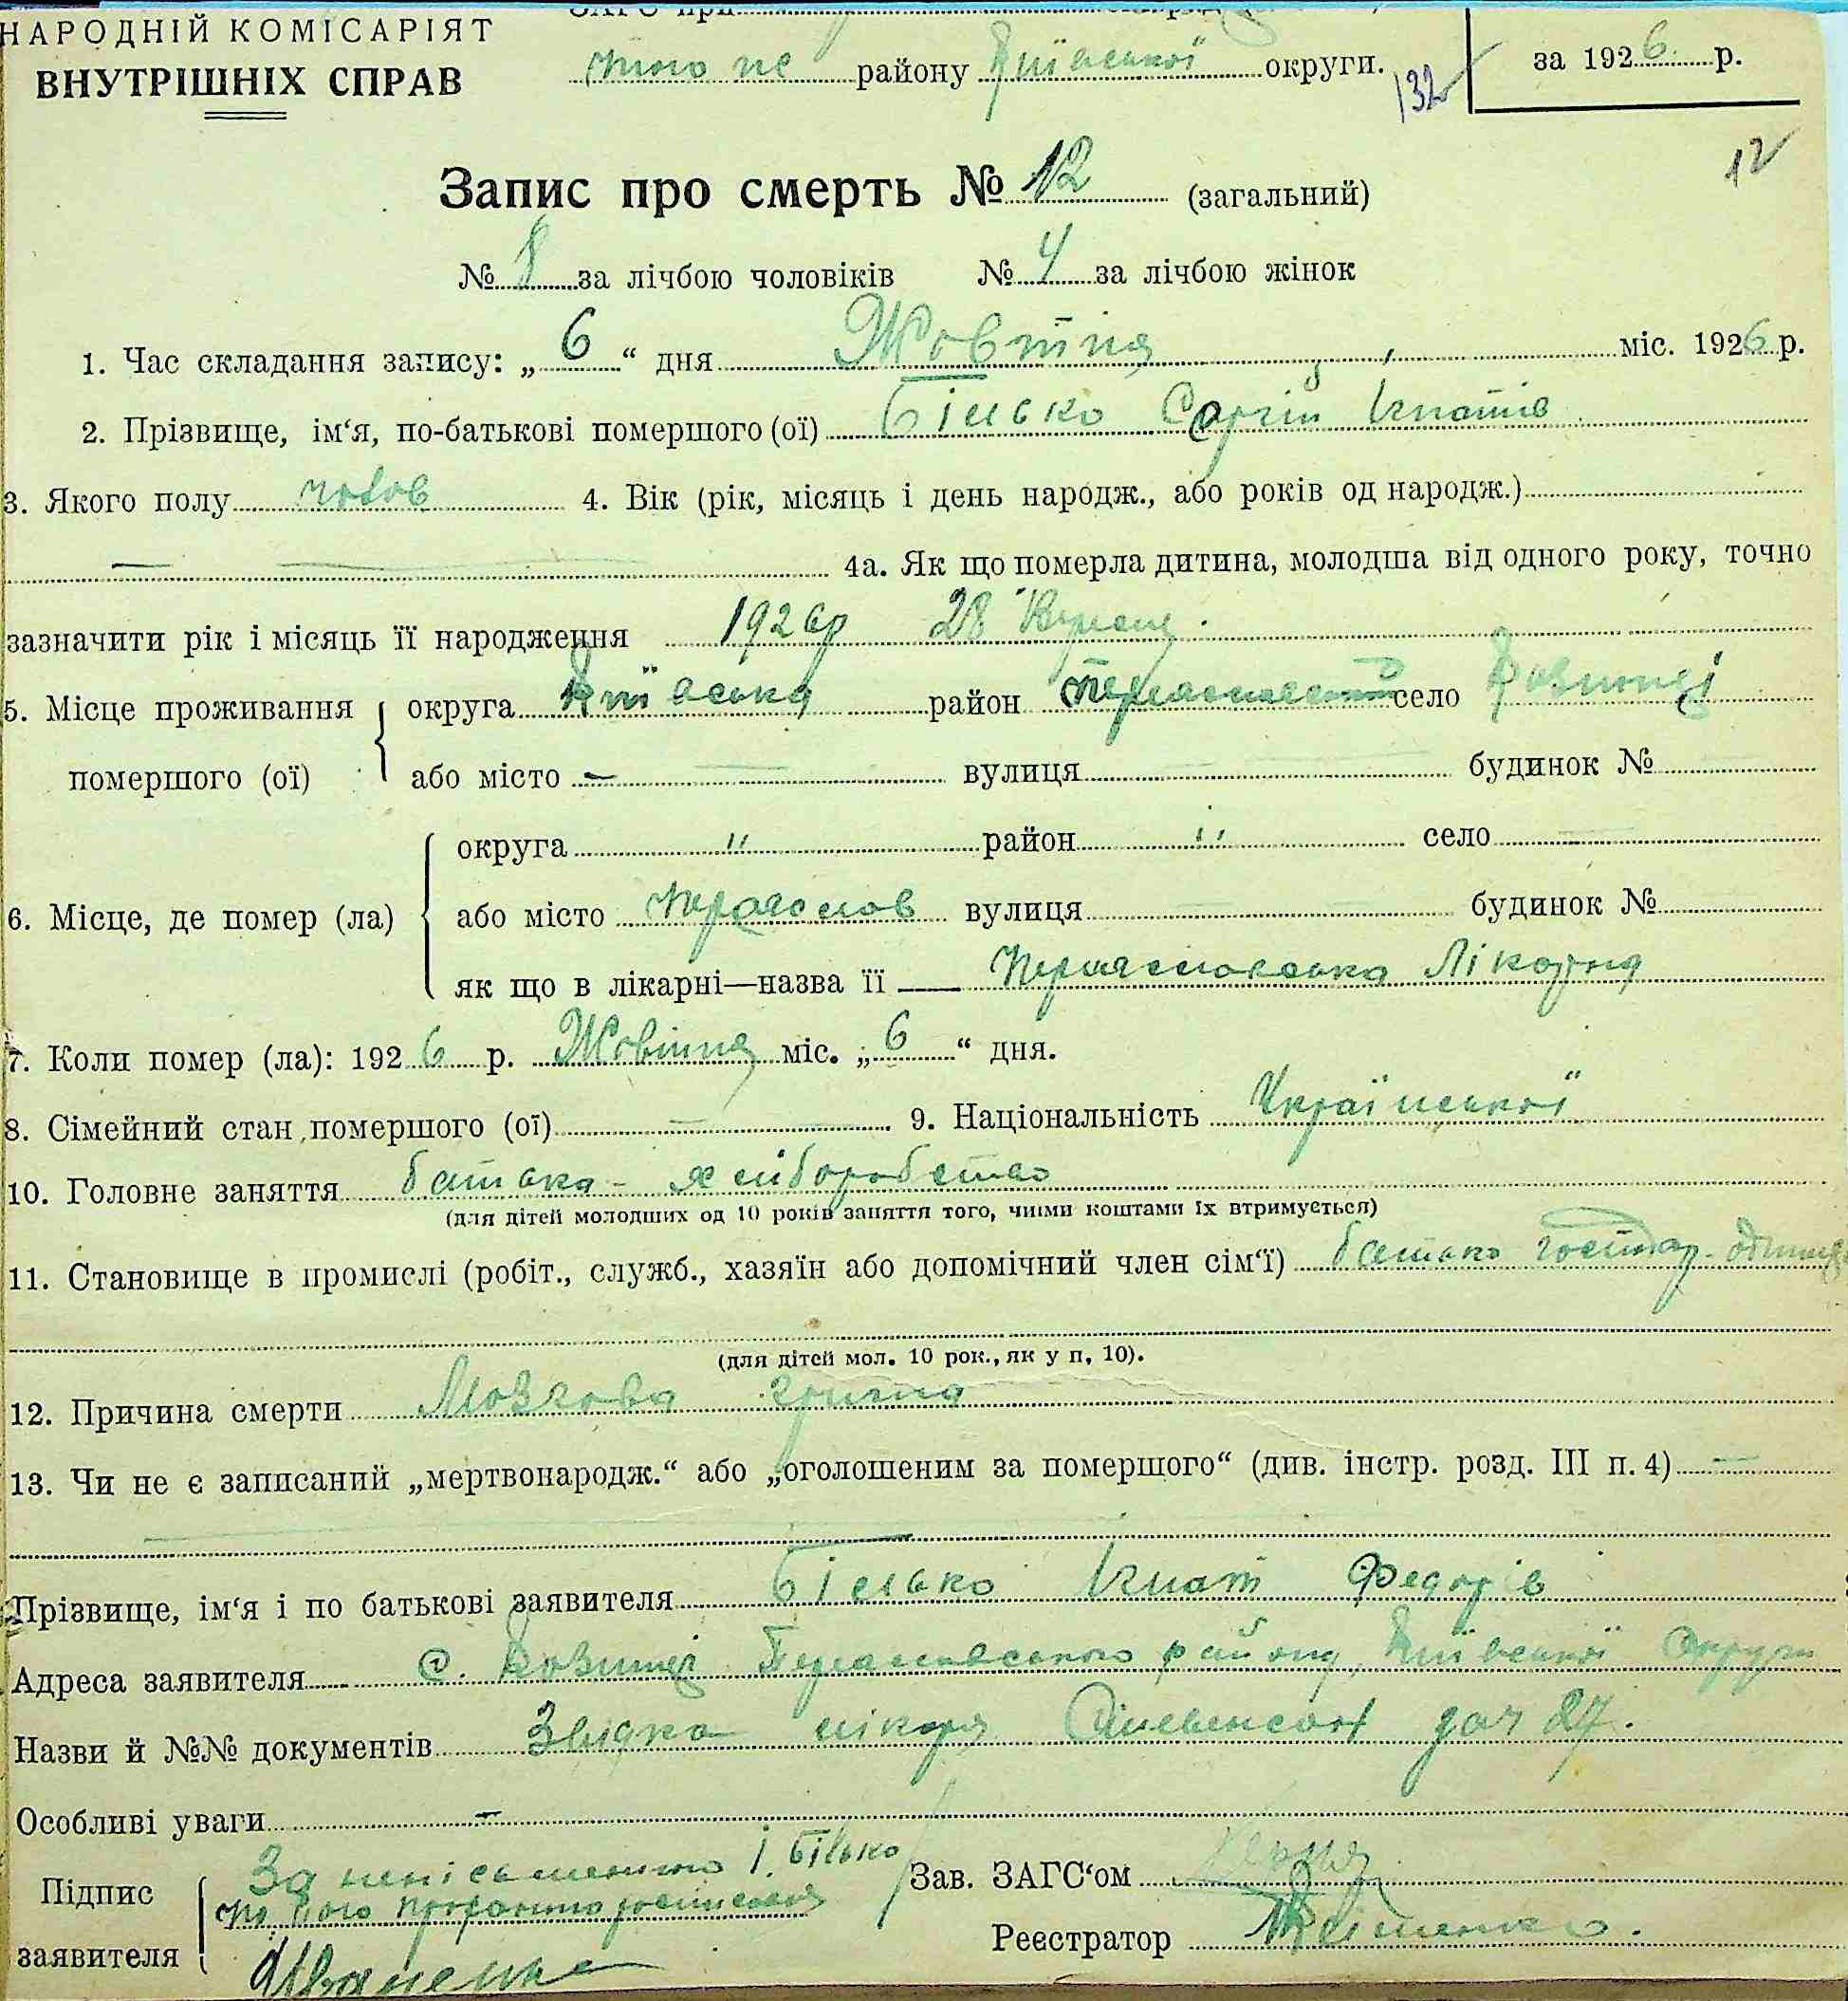 НАРОДНІЙ КОМІСАРІЯТ
ВНУТРІШНІХ СПРАВ
району Київської округи.
за 1926 р.
132
12
Запис про смерть № 12 (загальний)
№ 8 за лічбою чоловіків № 4 за лічбою жінок
1. Час складання запису: „ 6 “ дня Жовтня міс. 1926 р.
2. Прізвище, ім‘я, по-батькові помершого (ої) Білько Сергій Ігнатів
3. Якого полу чолов 4. Вік (рік, місяць і день народж., або років од народж.)
— 4а. Як що померла дитина, молодша від одного року, точно
зазначити рік і місяць її народження 1926р 28 Вересня.
5. Місце проживання помершого (ої) округа Київська район село
або місто — вулиця будинок №
6. Місце, де помер (ла) округа " район " село —
або місто Переяслов вулиця будинок №
як що в лікарні—назва її — Переяславська Лікарня
7. Коли помер (ла): 1926 р. Жовтня міс. „ 6 “ дня.
8. Сімейний стан помершого (ої) — 9. Національність Української
10. Головне заняття батька - хліборобство
(для дітей молодших од 10 років заняття того, чиїми коштами їх втримується)
11. Становище в промислі (робіт., служб., хазяїн або допомічний член сім‘ї) батько господар
(для дітей мол. 10 рок., як у п, 10).
12. Причина смерти Мозкова грижа
13. Чи не є записаний „мертвонародж.“ або „оголошеним за помершого“ (див. інстр. розд. III п. 4) —
Прізвище, ім‘я і по батькові заявителя Білько Ігнат Федорів
Адреса заявителя с. Переяславського району, Київської Округи
Назви й №№ документів лікаря
Особливі уваги —
Підпис заявителя За неписьменного І. Білько
по його проханню росписався
Іваненко
Зав. ЗАГС‘ом
Реєстратор